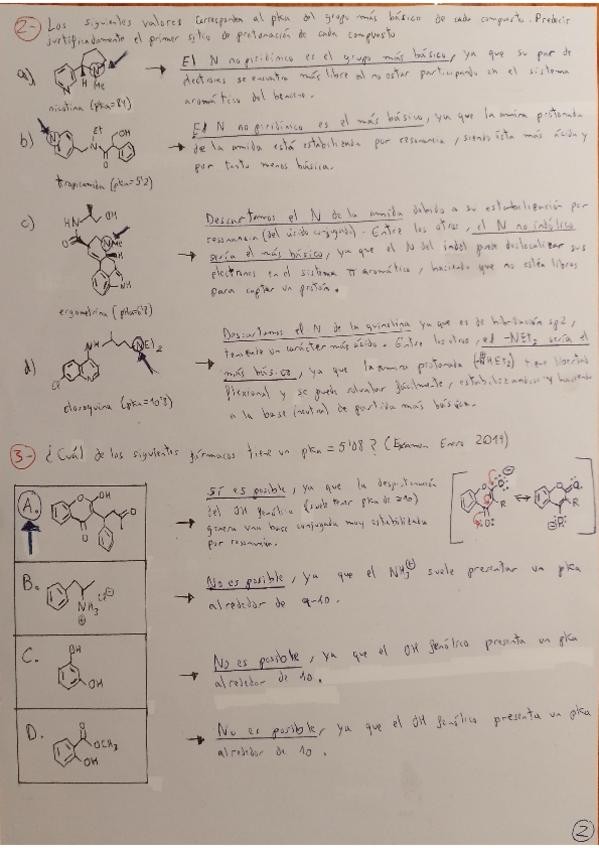 2- Los siguientes valores corresponden al pka del grupo más básico de cada compuesto. Predecir
justificadamente el primer sitio de protonación de cada compuesto
a)
N
N
H
Me
nicotina (pka=8'1)
→ El N no piridínico es el grupo más básico, ya que su par de
electrones se encuentra más libre al no estar participando en el sistema
aromático del benceno.
b)
N
Et
N
OH
O
tropicamida (pka=5'2)
→ El N no piridínico es el más básico, ya que la amina protonada
de la amida está estabilizada por resonancia, siendo ésta más ácida y
por tanto menos básica.
c)
HN
OH
O
NMe
H
NH
ergometrina (pka=6'8)
→ Descartamos el N de la amida debido a su estabilización por
resonancia (del ácido conjugado). Entre los otros, el N no indólico
sería el más básico, ya que el N del indol puede deslocalizar sus
electrones en el sistema π aromático, haciendo que no estén libres
para captar un protón.
d)
NH
NEt2
Cl
N
cloroquina (pka=10'8)
→ Descartamos el N de la quinolina ya que es de hibridación sp2,
teniendo un carácter más ácido. Entre los otros, el -NEt2 sería el
más básico, ya que la amina protonada (-NHEt2) tiene libertad
flexional y se puede solvatar fácilmente, estabilizándose y haciendo
a la base (neutra) de partida más básica.
3- ¿Cuál de los siguientes fármacos tiene un pka = 5'08? (Examen Enero 2014)
A.
O
O
OH
O
O
→ Sí es posible, ya que la desprotonación
del OH fenólico (suele tener pka de ≈10)
genera una base conjugada muy estabilizada
por resonancia.
B.
NH3
⊕
Cl⊖
→ No es posible, ya que el NH3⊕ suele presentar un pka
alrededor de 9-10.
C.
OH
OH
→ No es posible, ya que el OH fenólico presenta un pka
alrededor de 10.
D.
O
OCH3
OH
→ No es posible, ya que el OH fenólico presenta un pka
alrededor de 10.
2